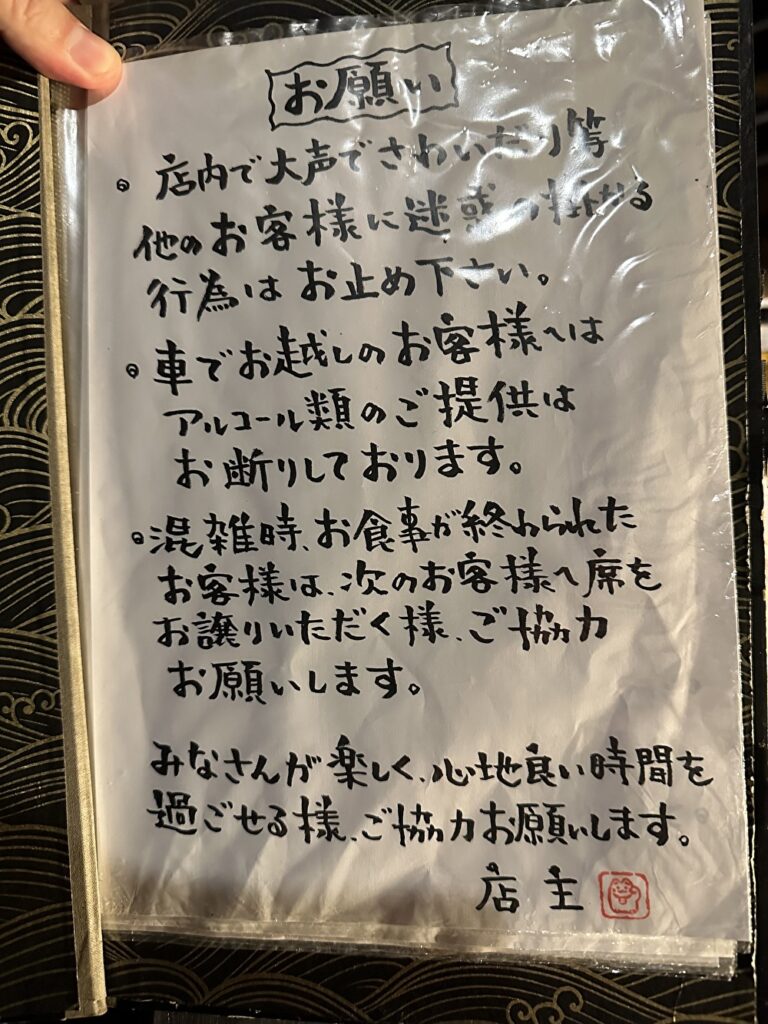 お願い
・店内で大声でさわいだり等
他のお客様に迷惑の掛かる
行為はお止め下さい。
・車でお越しのお客様へは
アルコール類のご提供は
お断りしております。
・混雑時、お食事が終わられた
お客様は、次のお客様へ席を
お譲りいただく様、ご協力
お願いします。
みなさんが楽しく、心地良い時間を
過ごせる様、ご協力お願いします。
店主